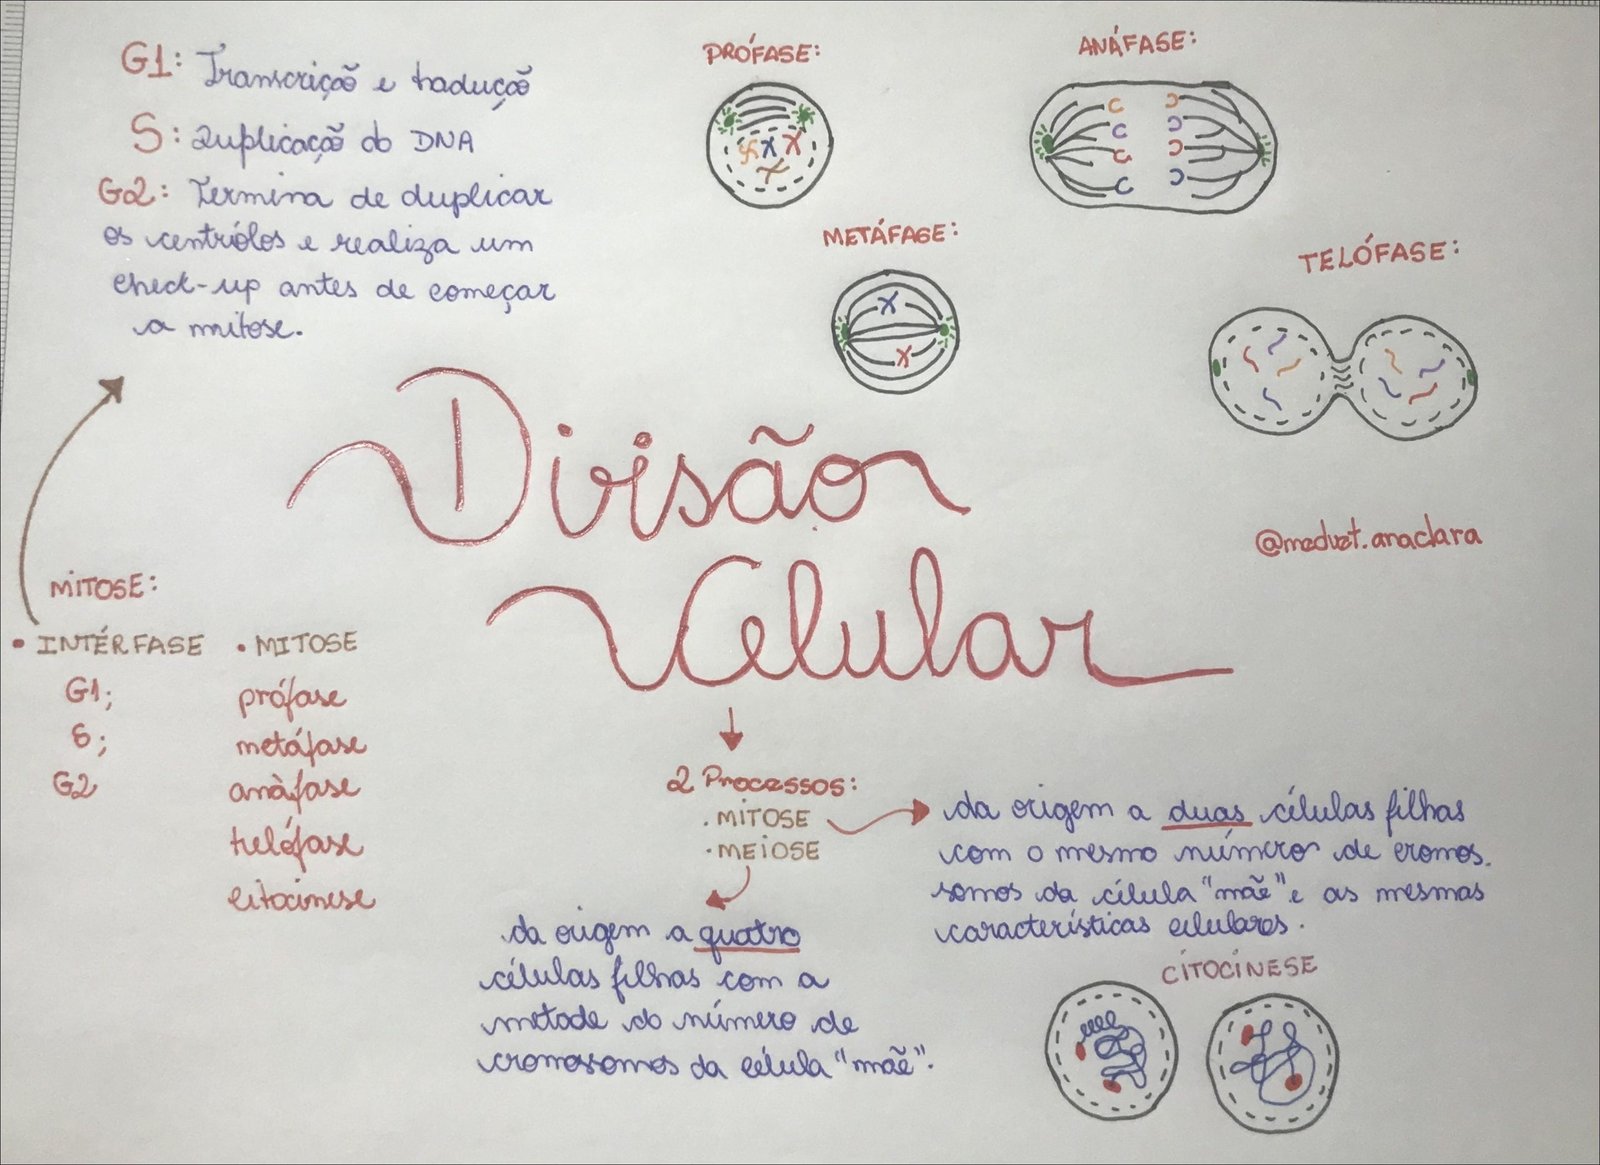 G1: Transcrição e tradução
S: Duplicação do DNA
G2: Termina de duplicar
os centríolos e realiza um
check-up antes de começar
a mitose.
PRÓFASE:
ANÁFASE:
METÁFASE:
TELÓFASE:
Divisão
Celular
@medvet.anaclara
MITOSE:
• INTÉRFASE
G1;
S;
G2
• MITOSE
prófase
metáfase
anàfase
telófase
citocinese
2 Processos:
. MITOSE
. MEIOSE
da origem a duas células filhas
com o mesmo número de cromos.
somos da célula "mãe" e as mesmas
características celulares.
da origem a quatro
células filhas com a
metade do número de
cromossomos da célula "mãe".
CITOCINESE